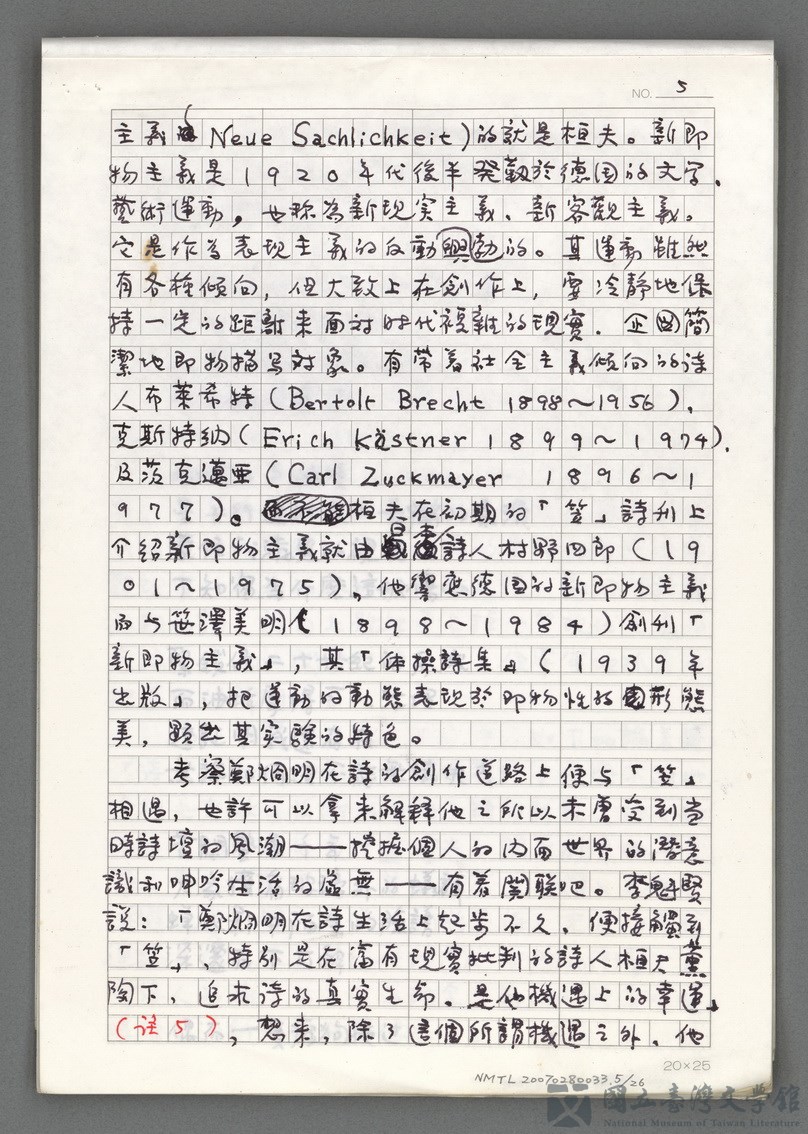 NO. 5
主義(Neue Sachlichkeit)的就是桓夫。新即
物主義是1920年代後半發軔於德国的文学、
藝術運動，也称為新現实主義、新客觀主義。
它是作為表現主義的反動興勃的。其運動雖然
有各種傾向，但大致上在創作上，要冷靜地保
持一定的距離来面対時代複雜的現實，企図簡
潔地即物描写対象。有带着社会主義傾向的诗
人布莱希特(Bertolt Brecht 1898～1956)、
克斯特纳(Erich Kästner 1899～1974)、
及茨克邁亜(Carl Zuckmayer 1896～1
977)。桓夫在初期的「笠」詩刊上
介紹新即物主義就由日本詩人村野四郎(19
01～1975)，他響应德国的新即物主義
而与笹澤美明(1898～1984)創刊「
新即物主義」，其「体操詩集」(1939年
出版)，把運動的動態表現於即物性的形態
美，顕出其实験的特色。
考察鄭烱明在詩的創作道路上便与「笠」
相遇，也許可以拿来解釋他之所以未曾受到当
時詩壇的風潮——挖掘個人的内面世界的潛意
識和呻吟生活的虛無——有着関联吧。李魁賢
説：「鄭烱明在詩生活上起步不久，便接觸到
「笠」，特別是在富有現實批判的詩人桓夫薰
陶下，追求诗的真實生命。是他機遇上的幸運」
(註5)，想来，除了這個所謂機遇之外，他
20×25
NMTL 20070280033.5/26
國立臺灣文學館
National Museum of Taiwan Literature